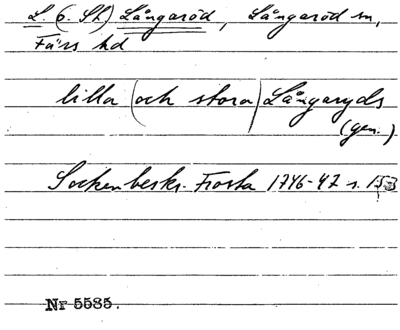 L. (o. St) Långaröd, Långaröd sn,
Färs hd
lilla (och stora) Långaryds
(gen.)
Sockenbeskr. Frosta 1746-47 s. 153
Nr 5585.